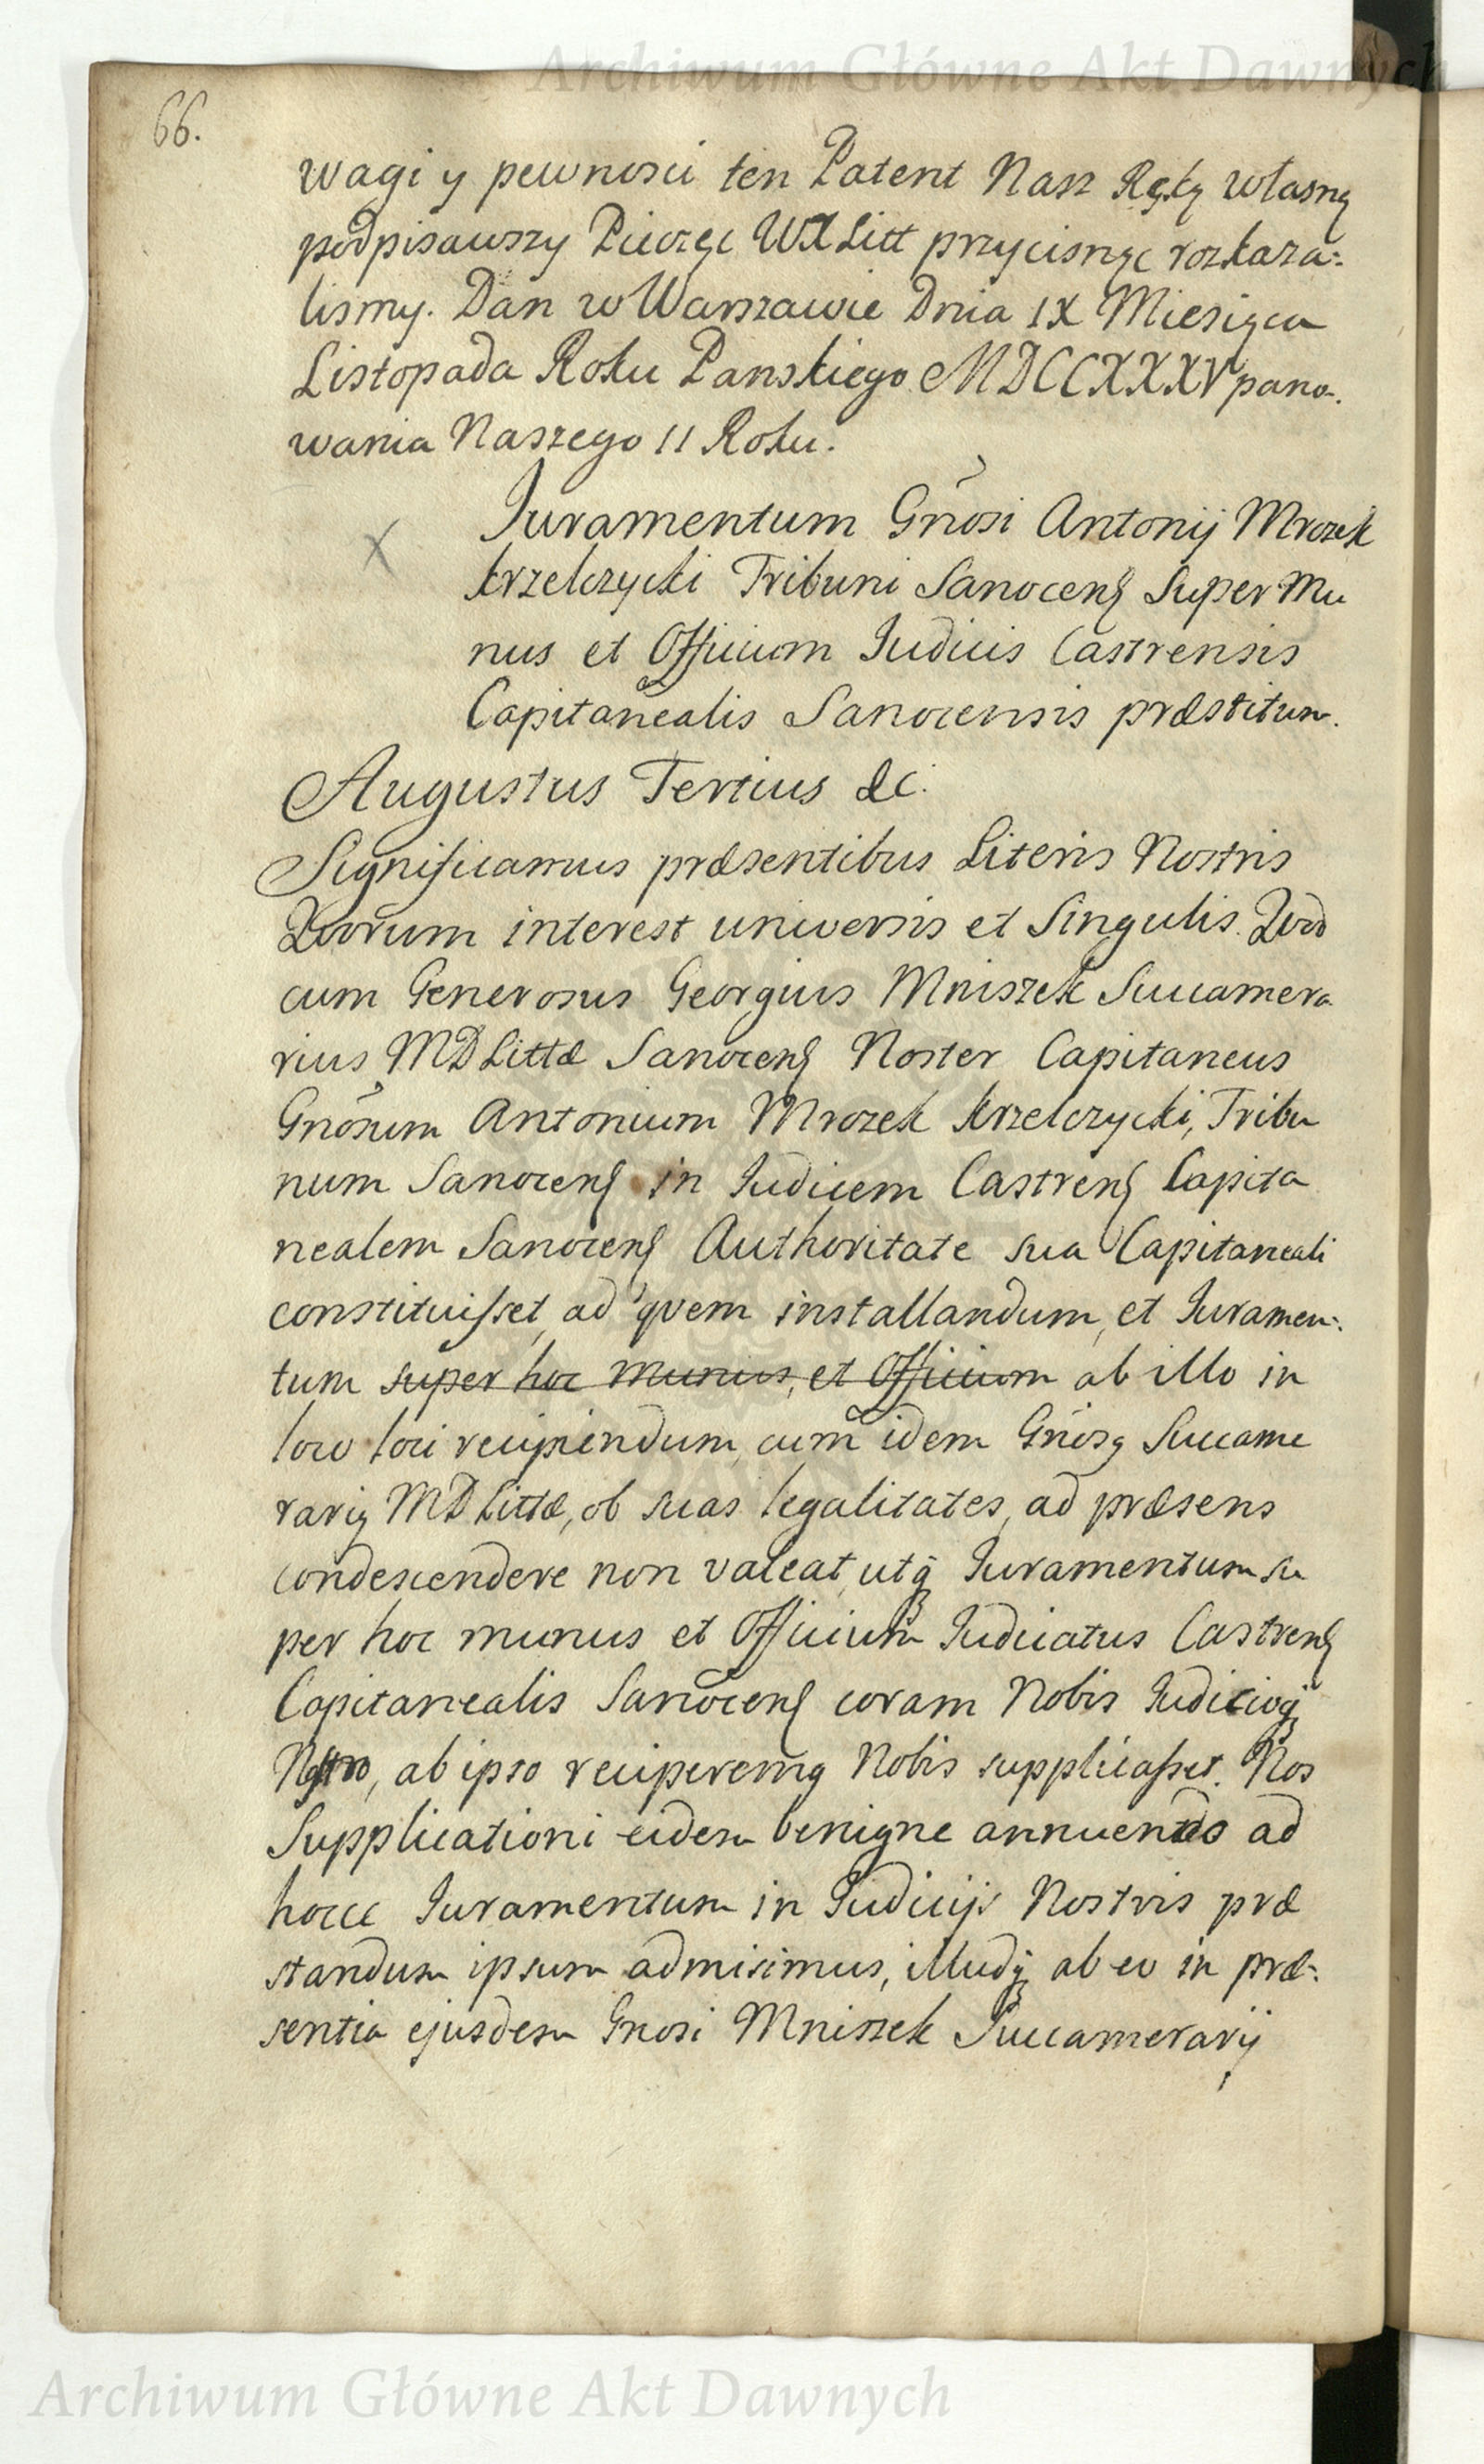 Archiwum Główne Akt Dawnych
66.
wagi y pewnosci ten Patent Nasz Ręką własną
podpisawszy Pieczęć WXLitt przycisnąć rozkaza:
lismy. Dan w Warszawie Dnia IX Miesiąca
Listopada Roku Panskiego MDCCXXXV pano.
wania Naszego II Roku.
Juramentum Gnōsi Antonij Mrozek
X
krzelczycki Tribuni Sanocens Super Mu
nus et Officium Judicis Castrensis
Capitanealis Sanocensis præstitum.
Augustus Tertius &c.
Significamus præsentibus Literis Nostris
Quorum interest universis et Singulis. Quod
cum Generosus Georgius Mniszek Succamera
rius MDLittæ Sanocens Noster Capitaneus
Gnōsum Antonium Mrozek krzelczycki, Tribu
num Sanocens in Judicem Castrens Capita
nealem Sanocens Authoritate sua Capitaneali
constituisset, ad quem installandum, et Juramen:
tum super hoc munus, et Officium ab illo in
loco loci recipiendum, cum idem Gnōsq Succame
rariq MDLittæ, ob suas legalitates, ad præsens
condescendere non valeat, utq Juramentum su
per hoc munus et Officium Judicatus Castrens
Capitanealis Sanocens coram Nobis Judicioq
Nostro, ab ipso reciperemq Nobis supplicasset. Nos
Supplicationi eidem benigne annuendo ad
hocce Juramentum in Judicijs Nostris præ
standum ipsum admisimus, illudq ab eo in præ:
sentia ejusdem Gnosi Mniszek Succamerarij
Archiwum Główne Akt Dawnych